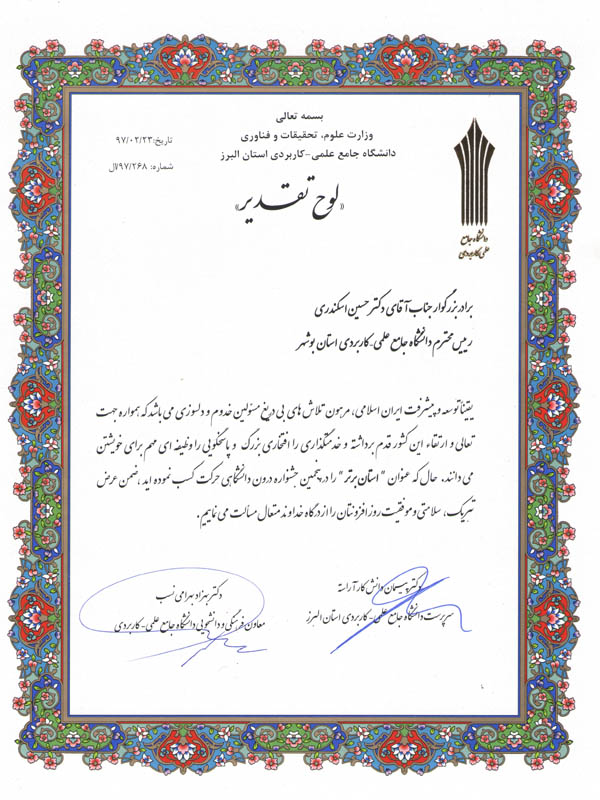 بسمه تعالی
وزارت علوم، تحقیقات و فناوری
دانشگاه جامع علمی-کاربردی استان البرز
تاریخ: ۹۷/۰۲/۲۳
شماره: ۹۷/۲۶۸/ال
«لوح تقدیر»
دانشگاه جامع
علمی کاربردی
برادر بزرگوار جناب آقای دکتر حسین اسکندری
رییس محترم دانشگاه جامع علمی-کاربردی استان بوشهر
یقینا توسعه و پیشرفت ایران اسلامی، مرهون تلاش های بی دریغ مسئولین خدوم و دلسوزی می باشد که همواره جهت
تعالی و ارتقاء این کشور قدم برداشته و خدمتگذاری را افتخاری بزرگ و پاسخگویی را وظیفه ای مهم برای خویشتن
می دانند. حال که عنوان " استان برتر " را در پنجمین جشنواره درون دانشگاهی حرکت کسب نموده اید، ضمن عرض
تبریک، سلامتی و موفقیت روزافزونتان را از درگاه خداوند متعال مسألت می نماییم.
دکتر پیمان دانش کار آراسته
سرپرست دانشگاه جامع علمی-کاربردی استان البرز
دکتر بهزاد بهرامی نسب
معاون فرهنگی و دانشجویی دانشگاه جامع علمی-کاربردی